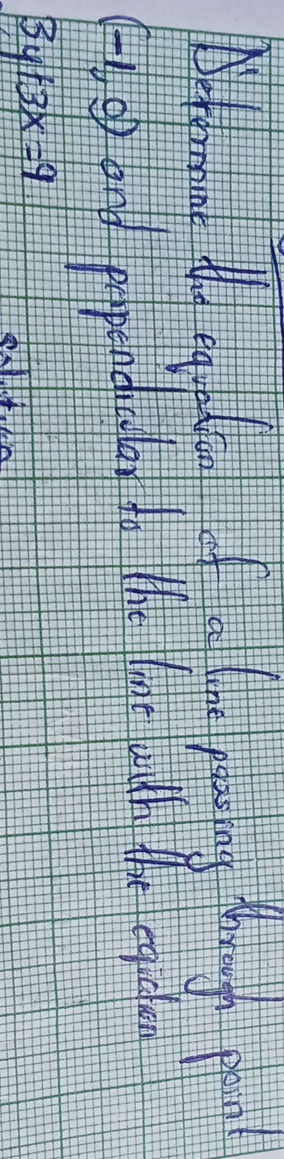 Determine the equation of a line passing through point
(-1,0) and perpendicular to the line with the equation
3y+3x=9
solution